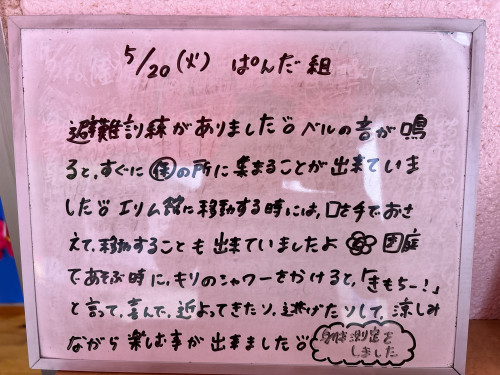 5/20(火) ぱんだ組
避難訓練がありました。ベルの音が鳴
ると、すぐに㋭の所に集まることが出来ていま
した。エリム館に移動する時には、口を手でおさ
えて、移動することも出来ていましたよ 園庭
であそぶ時に、キリのシャワーをかけると、「きもちー!」
と言って、喜んで、近よってきたり、逃げたりして、涼しみ
ながら楽しむ事が出来ました。
身体測定を
しました